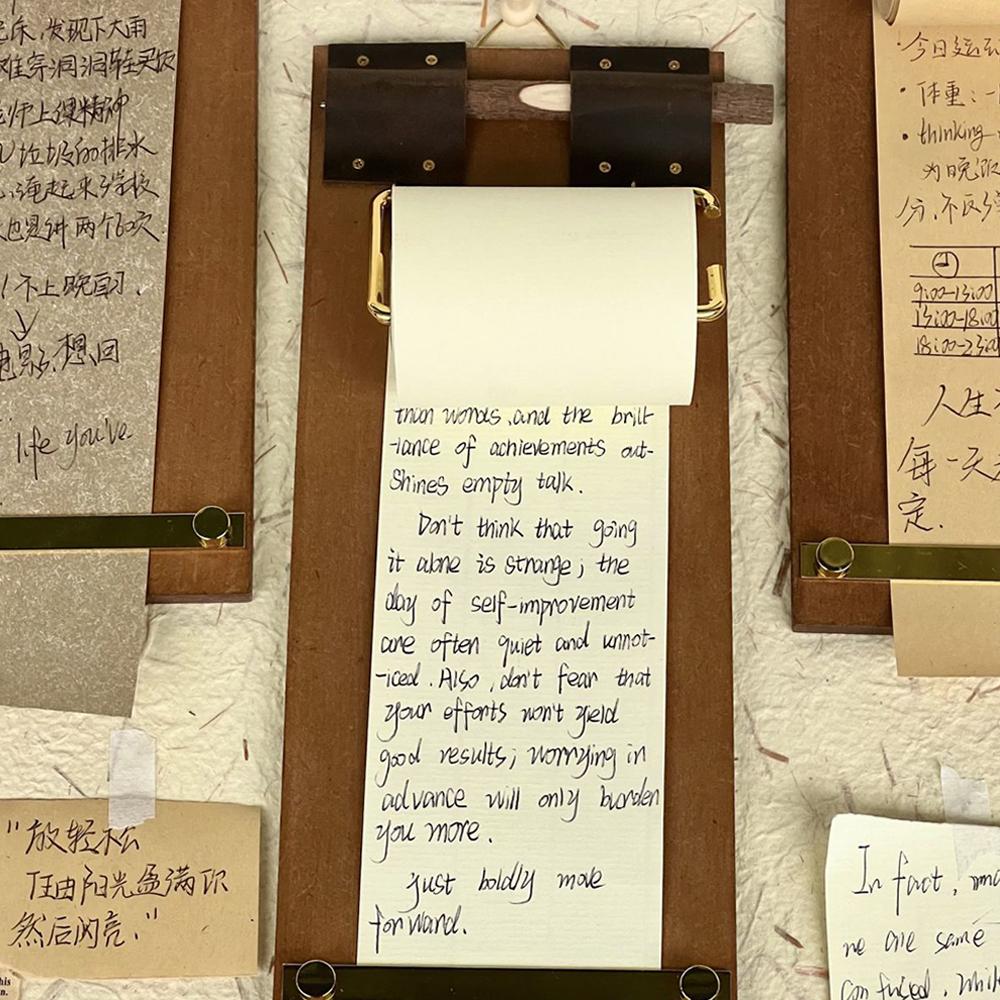 发现下大雨
上课精神
垃圾的排水
起来 学校
也是讲两个60次
不上晚自习.
想回
life you've
than words, and the bril-
-iance of achievements out-
Shines empty talk.
Don't think that going
it alone is strange; the
day of self-improvement
are often quiet and unnot-
-iced. Also, don't fear that
your efforts won't yield
good results; worrying in
advance will only burden
you more.
just boldly move
forward.
"放轻松
任由阳光盈满你
然后闪亮."
his
n.
·今日运
·体重:一
·thinking
为晚饭
分,不反
9:00-13:00
13:00-18:00
18:00-23:00
人生
每一天
定.
In fact,
we are same
confused. Whil